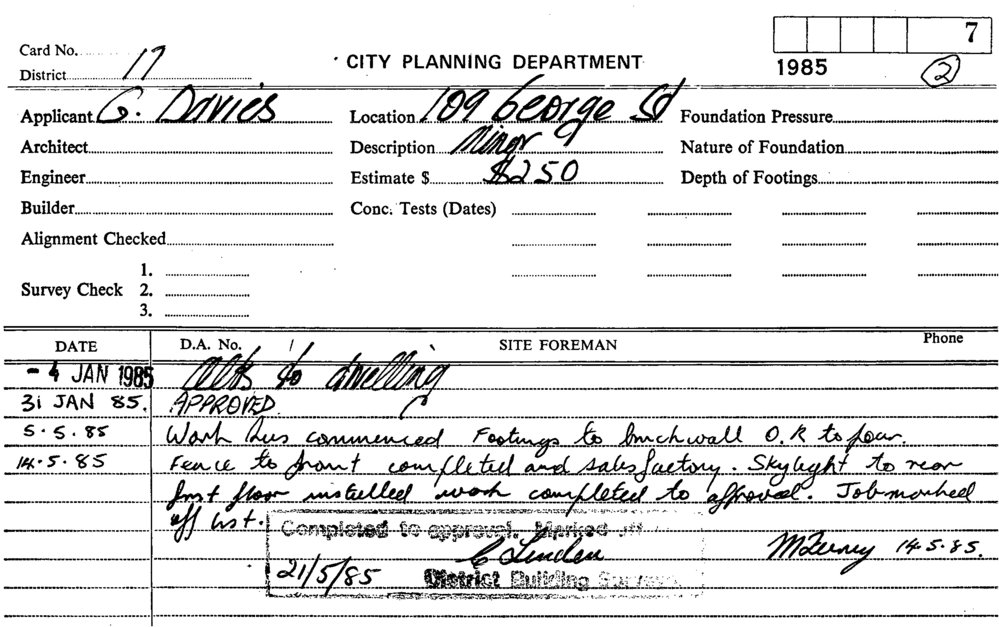 7
Card No. 17
CITY PLANNING DEPARTMENT
1985
2
District
Applicant G. Davies
Location 109 George St
Foundation Pressure
Architect
Description Minor
Nature of Foundation
Engineer
Estimate $ $250
Depth of Footings
Builder
Conc. Tests (Dates)
Alignment Checked
1.
Survey Check 2.
3.
DATE D.A. No. SITE FOREMAN Phone
- 4 JAN 1985 Alts to dwelling
31 JAN 85. APPROVED.
5.5.85 Work has commenced Footings to brickwall O.K to pour.
14.5.85 Fence to front completed and satisfactory. Skylight to rear
first floor installed work completed to approval. Job marked
off list.
Completed to approval. Marked off
C Linden
21/5/85 District Building Surveyor
14.5.85.